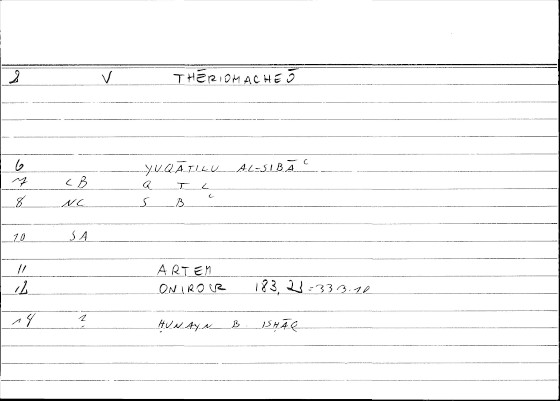 2 V THĒRIOMACHEŌ
6 YUQĀTILU AL-SIBĀʿ
7 CB Q T L
8 NC S B ʿ
10 SA
11 ARTEM
12 ONIROCR 183, 21 = 333.10
14 2 ḤUNAYN B ISḤĀQ